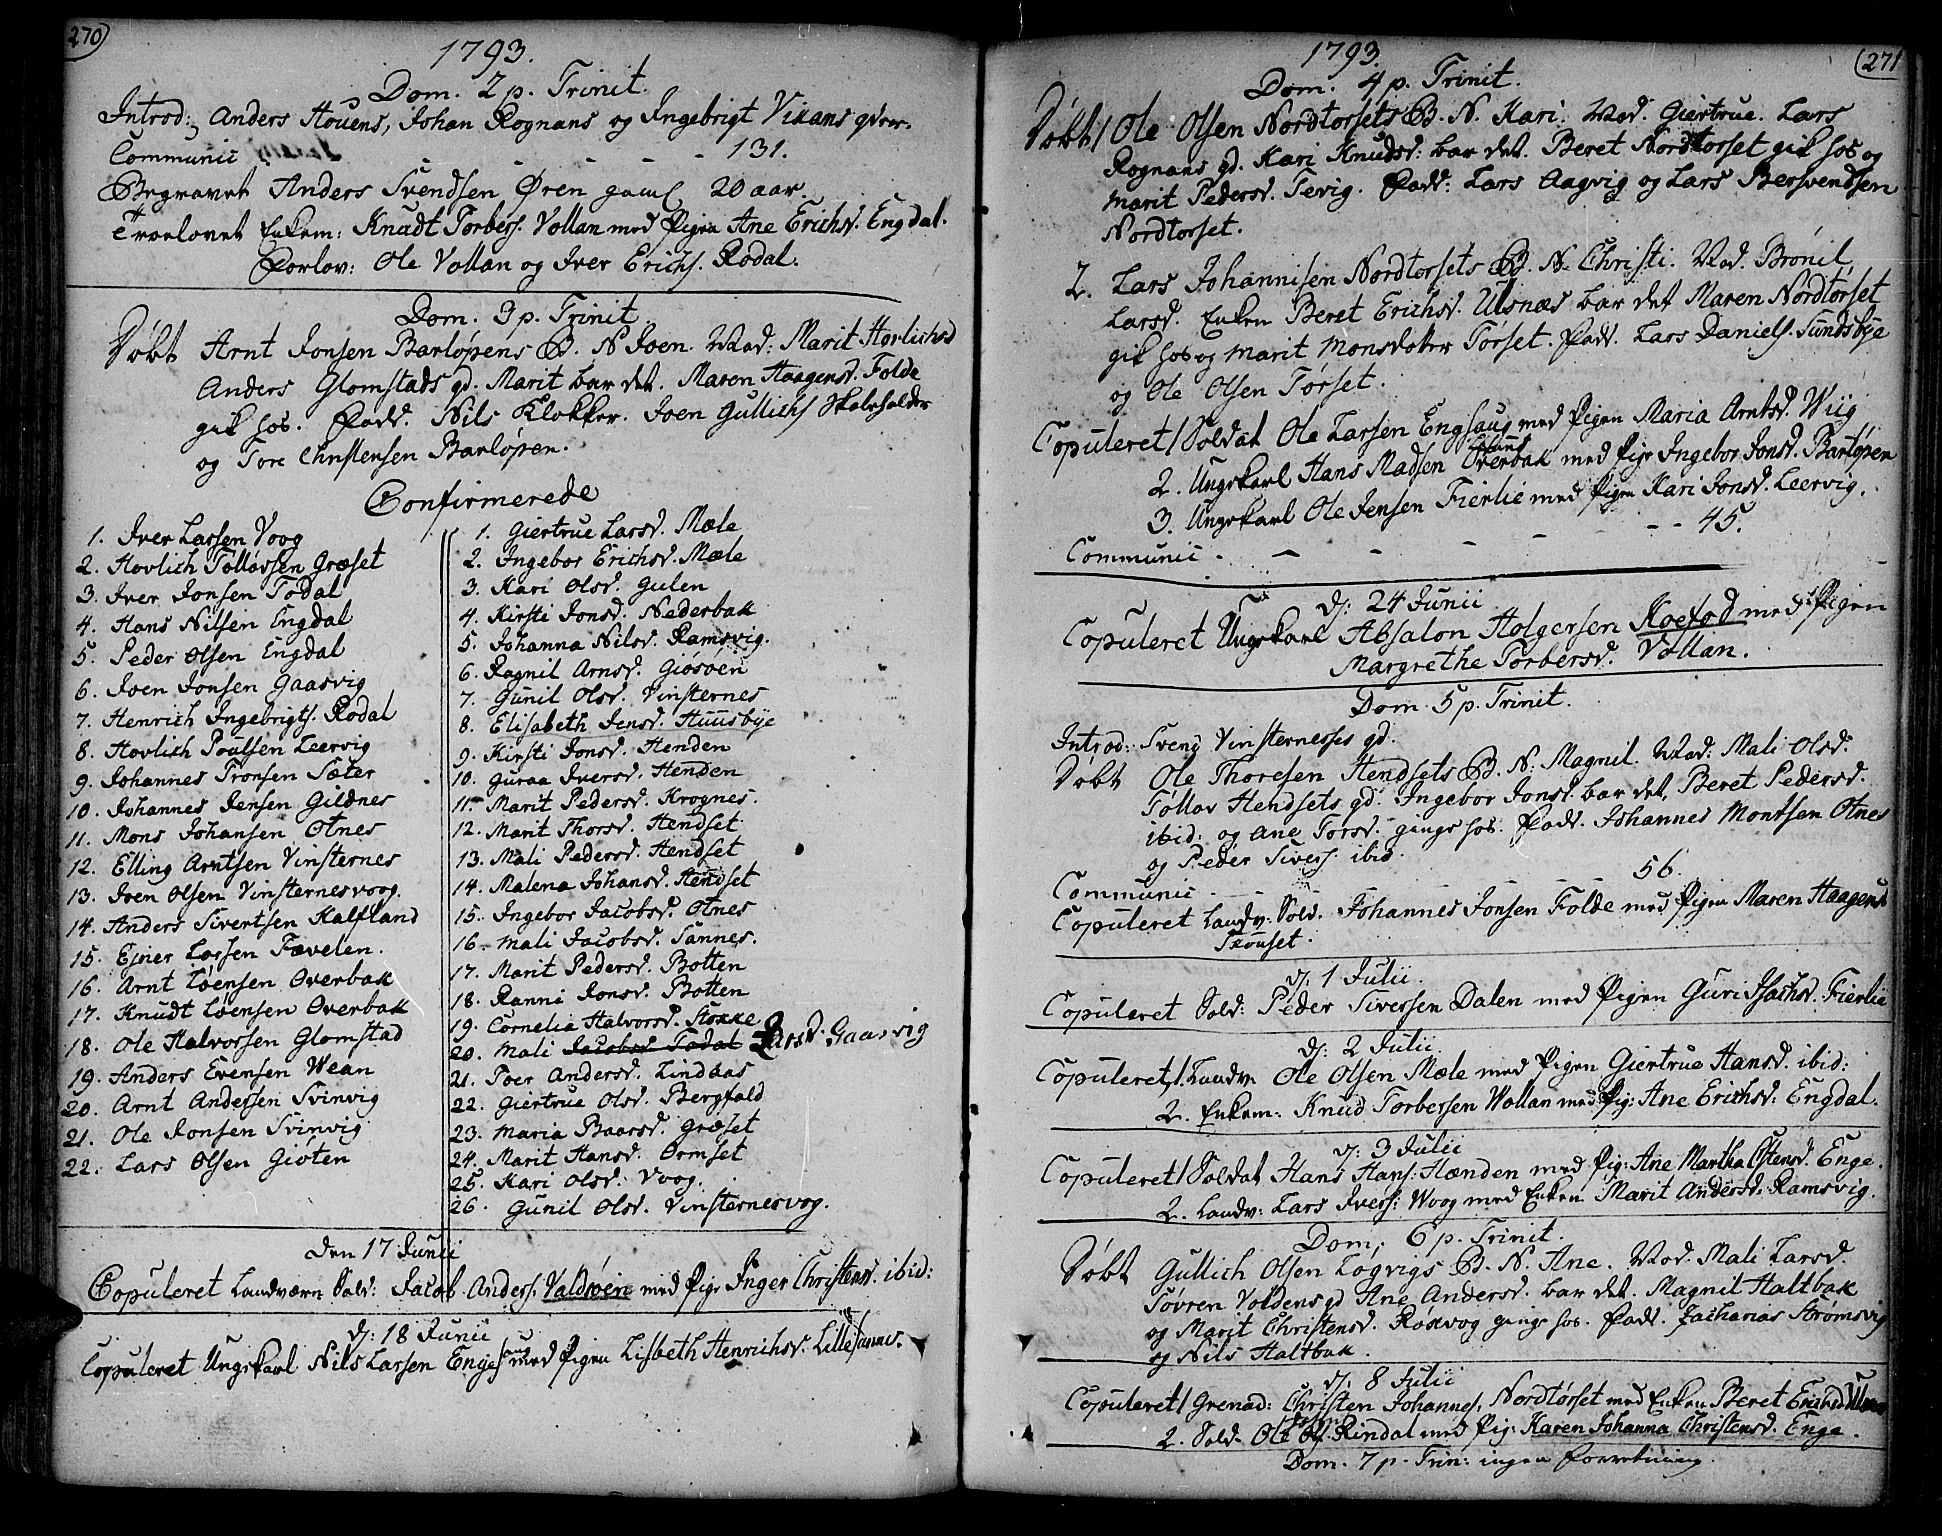 270
1793.
Dom. 2 p. Trinit.
Introd: Anders Houens, Johan Rognans og Ingebrigt Vikans qvin.
Communic - - - - - 131.
Begravet Anders Svendsen Øren gaml 20 aar.
Troelovet Enkem: Knudt Torbers. Vollan med Pigen Ane Erichsd. Engdal.
Forlov: Ole Vollan og Iver Erichs. Rodal.
Dom. 3 p. Trinit.
Døbt Arnt Jonsen Barløpens B. N Joen. Mod: Marit Hovlichsd
Anders Glomstads qd. Marit bar det. Maren Haagensd. Folde
gik hos. Fadd. Nils Klokker. Joen Gullichs Skoleholder
og Tore Christensen Barløpen.
Confirmerede
1. Iver Larsen Voog
2. Hovlich Tolløvsen Græset
3. Iver Jonsen Todal
4. Hans Nilsen Engdal
5. Peder Olsen Engdal
6. Joen Jonsen Gaasvig
7. Henrich Ingebrigts. Rodal
8. Hovlich Poulsen Leervig
9. Johannes Tronsen Sæter
10. Johannes Jensen Gildnes
11. Mons Johansen Otnes
12. Elling Arntsen Vinsternes
13. Joen Olsen Vinsternesvoog
14. Anders Sivertsen Kalfland
15. Ejner Larsen Fævelen.
16. Arnt Løensen Overbak
17. Knudt Løensen Overbak
18. Ole Halvorsen Glomstad
19. Anders Evensen Wean
20. Arnt Andersen Svinvig
21. Ole Jonsen Svinvig
22. Lars Olsen Giøten
1. Giertrue Larsd. Mæle
2. Ingebor Erichsd. Mæle
3. Kari Olsd. Gulen
4. Kirsti Jonsd. Nederbak
5. Johanna Nilsd. Ramsvig.
6. Ragnil Arnsd. Giøsøen
7. Gunil Olsd. Vinsternes
8. Elisabeth Jensd. Huusbye
9. Kirsti Jonsd. Henden
10. Guraa Iversd. Henden
11. Marit Pedersd. Krognes.
12. Marit Thorsd. Hendset
13. Mali Pedersd. Hendset
14. Malena Johansd. Hendset
15. Ingebor Jacobsd. Otnes
16. Mali Jacobsd. Sannes.
17. Marit Pedersd. Botten
18. Ranni Jonsd. Botten
19. Cornelia Halvorsd. Stokke
20. Mali Jacobsd Todal Larsd. Gaasvig
21. Toer Andersd. Lindaas
22. Giertrue Olsd. Bergfald
23. Maria Baarsd. Græset
24. Marit Hansd. Ormset
25. Kari Olsd. Voog.
26. Gunil Olsd. Vinsternesvog.
Den 17 Junii
Copuleret Landværn Sold: Jacob Anders. Valdsøen med Pige Inger Christensd. ibid:
d: 18 Junii
Copuleret Ungekarl Nils Larsen Engesaug med Pigen Lisbeth Henrichsd. Lillesannes.
271
1793.
Dom. 4 p. Trinit.
Døbt 1 Ole Olsen Nordtorsets B. N. Kari. Mod. Giertrue. Lars
Rognans qd. Kari Knudsd: bar det. Beret Nordtorset gik hos og
Marit Pedersd. Tevig. Fadd: Lars Aagvig og Lars Bersvendsen
Nordtorset.
2. Lars Johannisen Nordtorsets B. N. Christi. Mod. Brønil
Larsd. Enken Beret Erichsd. Ulsnæs bar det Maren Nordtørset
gik hos og Marit Monsdoter Torset. Fadd. Lars Daniels. Sundsbye
og Ole Olsen Torset.
Copuleret 1 Soldat Ole Larsen Engsaug med Pigen Maria Arntsd. Wiig
2. Ungekarl Hans Madsen Overbak med Pige Ingebor Jonsd. Barløpen
3. Ungekarl Ole Jensen Fierlie med Pigen Kari Jonsd. Leervig.
Communic. - - - - - - 45.
d: 24 Junii
Copuleret Ungekarl Absalon Holgersen Koefod med Pigen
Margrethe Torbersd. Vollan.
Dom. 5 p. Trinit.
Introd: Svend Vinsternesses qd.
Døbt Ole Thoresen Hendsets B. N. Magnil. Mod: Mali Olsd.
Tøllov Hendsets qd. Ingebor Jonsd. bar det, Beret Pedersd.
ibid: og Ane Torsd. ginge hos. Fadd. Johannes Montsen Otnes
og Peder Sivers. ibid.
Communic - - - - - 56.
Copuleret Landv: Sold. Johannes Jonsen Folde med Pigen Maren Haagensd
Skouset.
d: 1 Julii
Copuleret Sold: Peder Siversen Dalen med Pigen Guri Isachsd. Fierlie
d: 2 Julii
Copuleret 1. Landv. Ole Olsen Mæle med Pigen Giertrue Hansd. ibid:
2. Enkem: Knud Torbersen Wollan med Pig: Ane Erichsd: Engdal.
d: 3 Julii
Copuleret 1 Soldat Hans Hans. Hænden med Pig: Ane Martha Ostensd. Enge.
2. Landv: Lars Ivers: Woog med Enken Marit Andersd: Ramsvig.
Dom. 6 p. Trinit.
Døbt Gullich Olsen Løgvigs B. N. Ane. Mod. Mali Larsd.
Søvren Voldens qd Ane Andersd. bar det. Magnil Haltbak
og Marit Christensd. Røkvog ginge hos. Fadd. Zacharias Strømsvig
og Nils Haltbak.
d: 8 Julii
Copuleret 1 Grenad: Christen Johannes. Nordtørset med Enken Beret Erichsd Ulsnes
2. Sold. Ole Ols. Rindal med Pig: Karen Johanna Christensd. Enge.
Dom. 7 p. Trin: ingen Forretning.